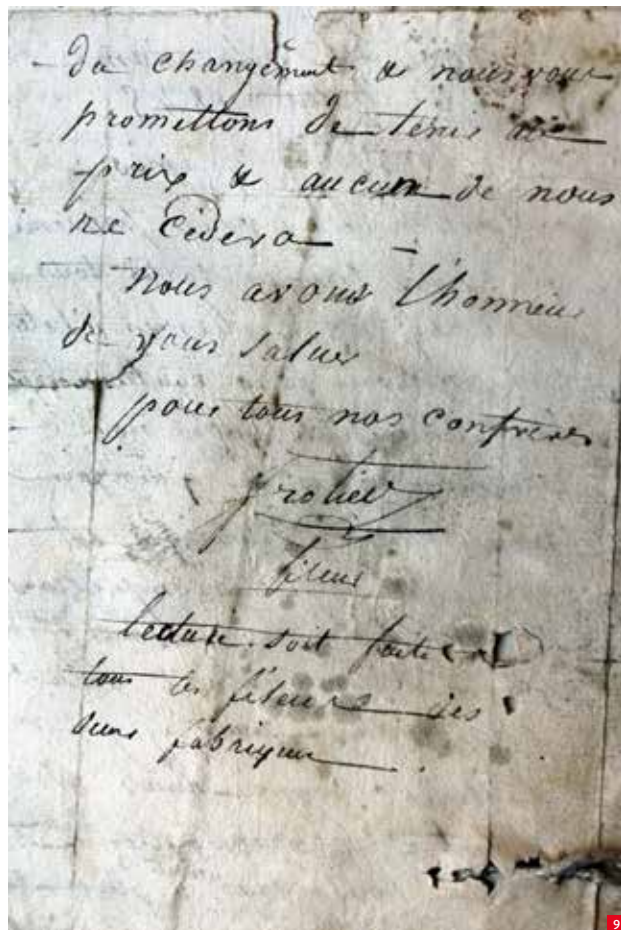 du changement & nous vous
promettons de tenir au
prix & aucun de nous
ne cédera
nous avons l'honneur
de vous saluer
pour tous nos confrères
fileur
lecture soit faite a
tous les fileurs des
deux fabriques
9